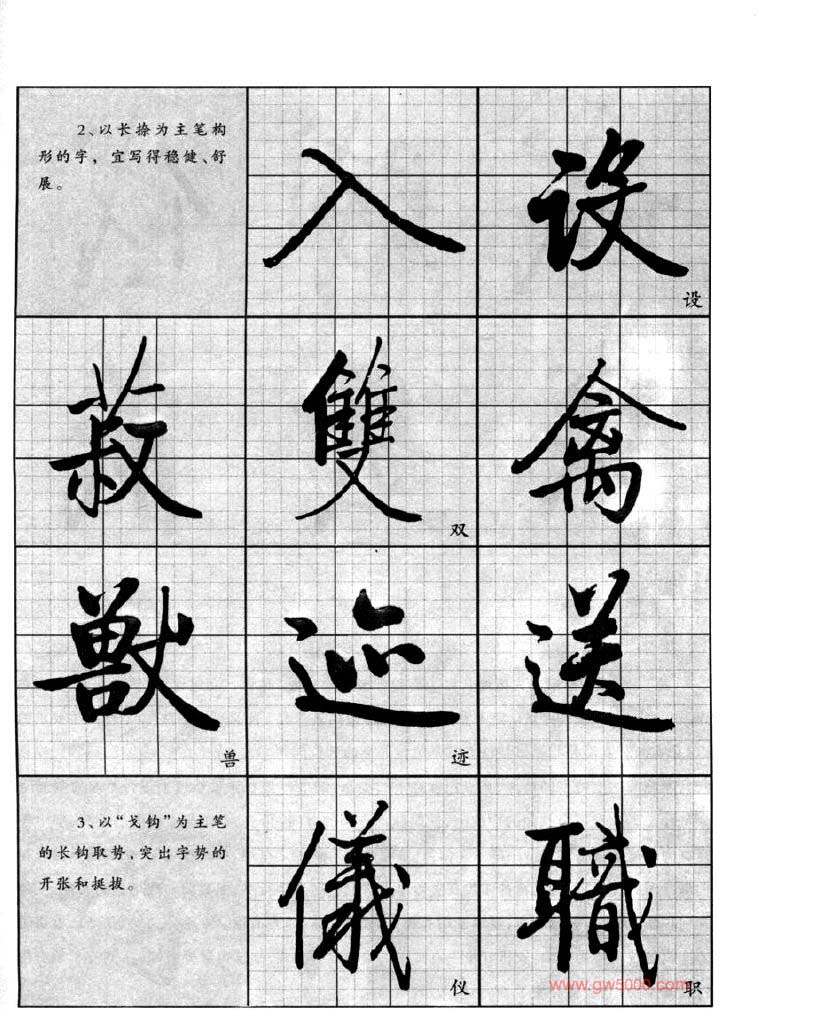 2、以长捺为主笔构
形的字，宜写得稳健、舒
展。
入
設
设
菽
雙
双
禽
獸
兽
迹
迹
送
3、以“戈钩”为主笔
的长钩取势，突出字势的
开张和挺拔。
儀
仪
職
职
www.gw5000.com